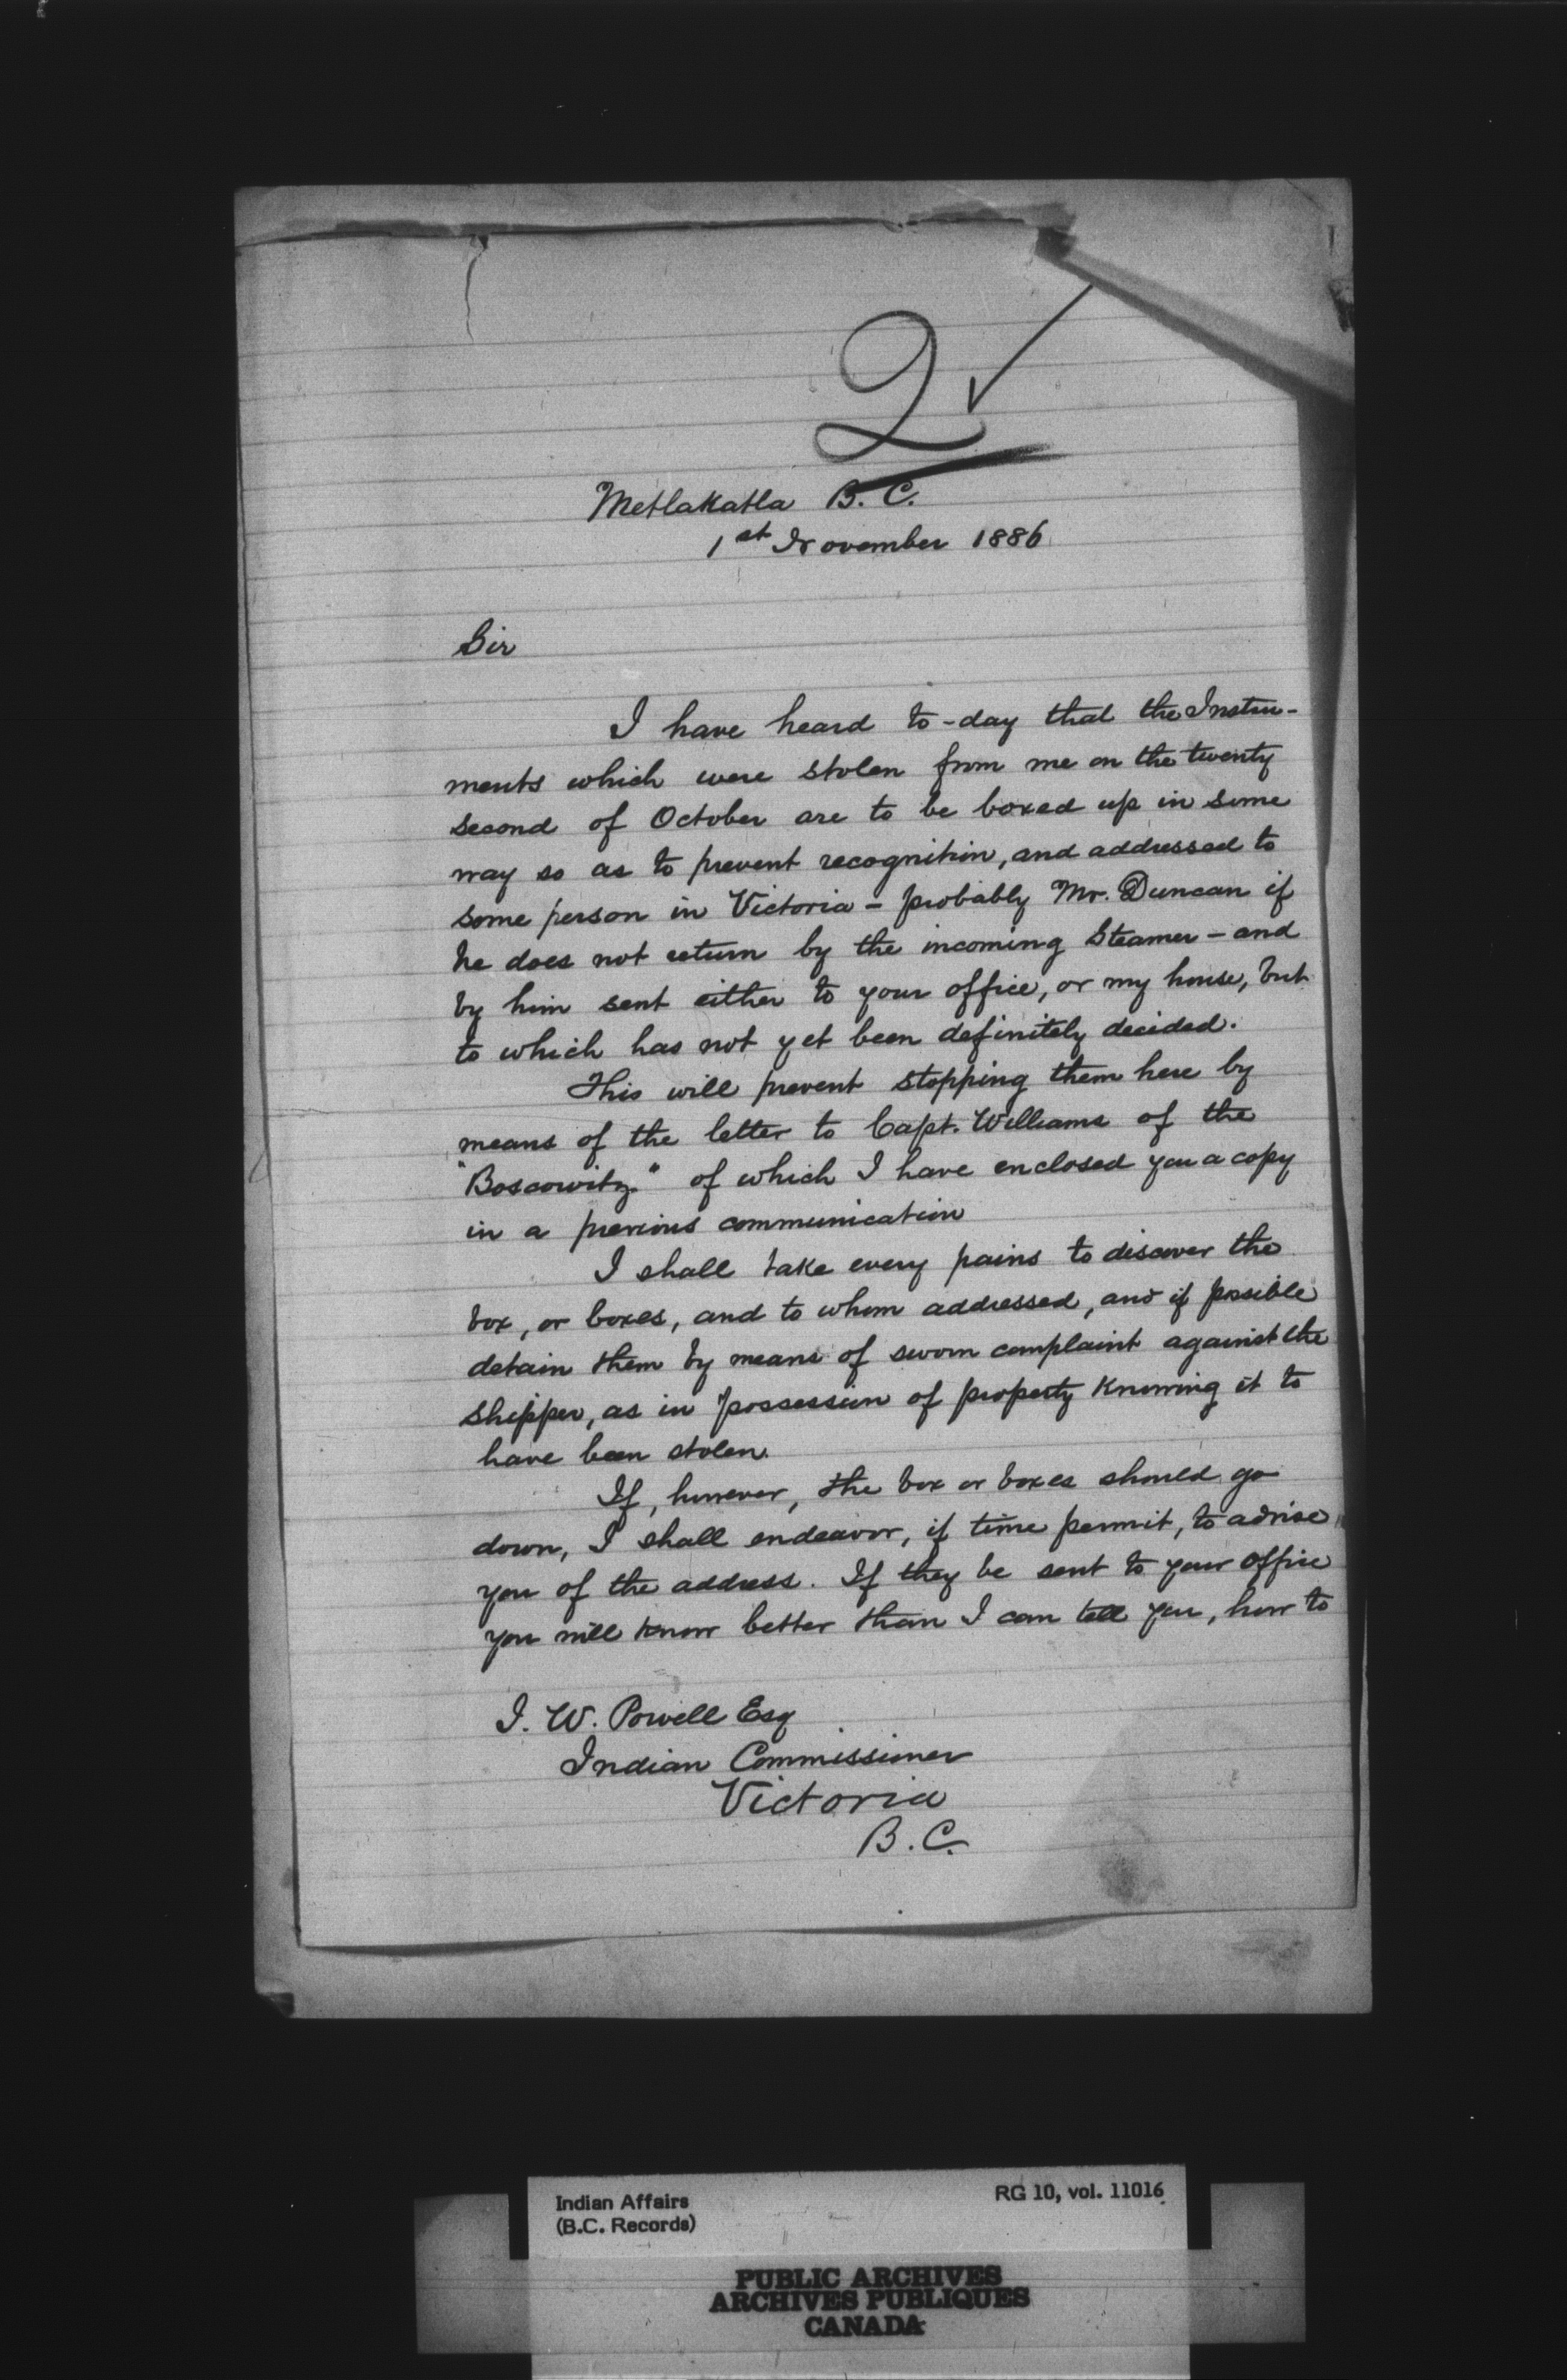 2
Metlakatla B. C.
1st November 1886
Sir
I have heard to-day that the Instru-
ments which were stolen from me on the twenty
second of October are to be boxed up in some
way so as to prevent recognition, and addressed to
some person in Victoria - probably Mr. Duncan if
he does not return by the incoming Steamer - and
by him sent either to your office, or my house, but
to which has not yet been definitely decided.
This will prevent stopping them here by
means of the letter to Capt. Williams of the
"Boscowitz" of which I have enclosed you a copy
in a previous communication
I shall take every pains to discover the
box, or boxes, and to whom addressed, and if possible
detain them by means of sworn complaint against the
shipper, as in possession of property knowing it to
have been stolen.
If, however, the box or boxes should go
down, I shall endeavor, if time permit, to advise
you of the address. If they be sent to your office
you will know better than I can tell you, how to
I. W. Powell Esq
Indian Commissioner
Victoria
B.C.
Indian Affairs
(B.C. Records)
RG 10, vol. 11016
PUBLIC ARCHIVES
ARCHIVES PUBLIQUES
CANADA